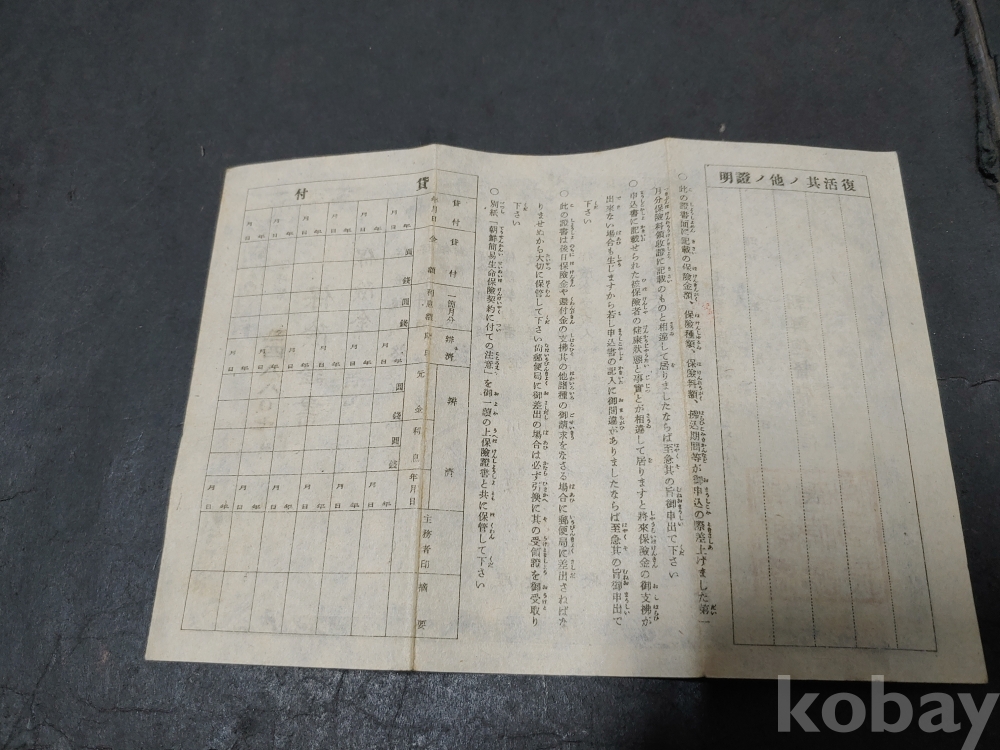 復活其ノ他ノ證明
○ 此の證書面記載の保險金額、保險種類、保險料額、拂込期間等が御申込の際差上げました第一
月分保險料領收證に記載のものと相違して居りましたならば至急其の旨御申出で下さい
○ 申込書に記載せられた被保險者の健康狀態と事實とが相違して居りますと將來保險金の御支拂が
出來ない場合も生じますから若し申込書の記入に御間違がありましたならば至急其の旨御申出で
下さい
○ 此の證書は後日保險金や還付金の支拂其の他諸種の御請求をなさる場合に郵便局に差出さねばな
りませぬから大切に保管して下さい尙郵便局に御差出の場合は必ず引換に其の受領證を御受取り
下さい
○ 別紙「朝鮮簡易生命保險契約に付ての注意」を御一讀の上保險證書と共に保管して下さい
貸付
貸付年月日
貸付金額
一箇月分利息額
辨濟期日
辨濟
元金
利息
年月日
主務者印
摘要
年月日 年月日 年月日 年月日 年月日 年月日
圓 錢
圓 錢
年月日 年月日 年月日 年月日 年月日 年月日
圓 錢
圓 錢
年月日 年月日 年月日 年月日 年月日 年月日
kobay